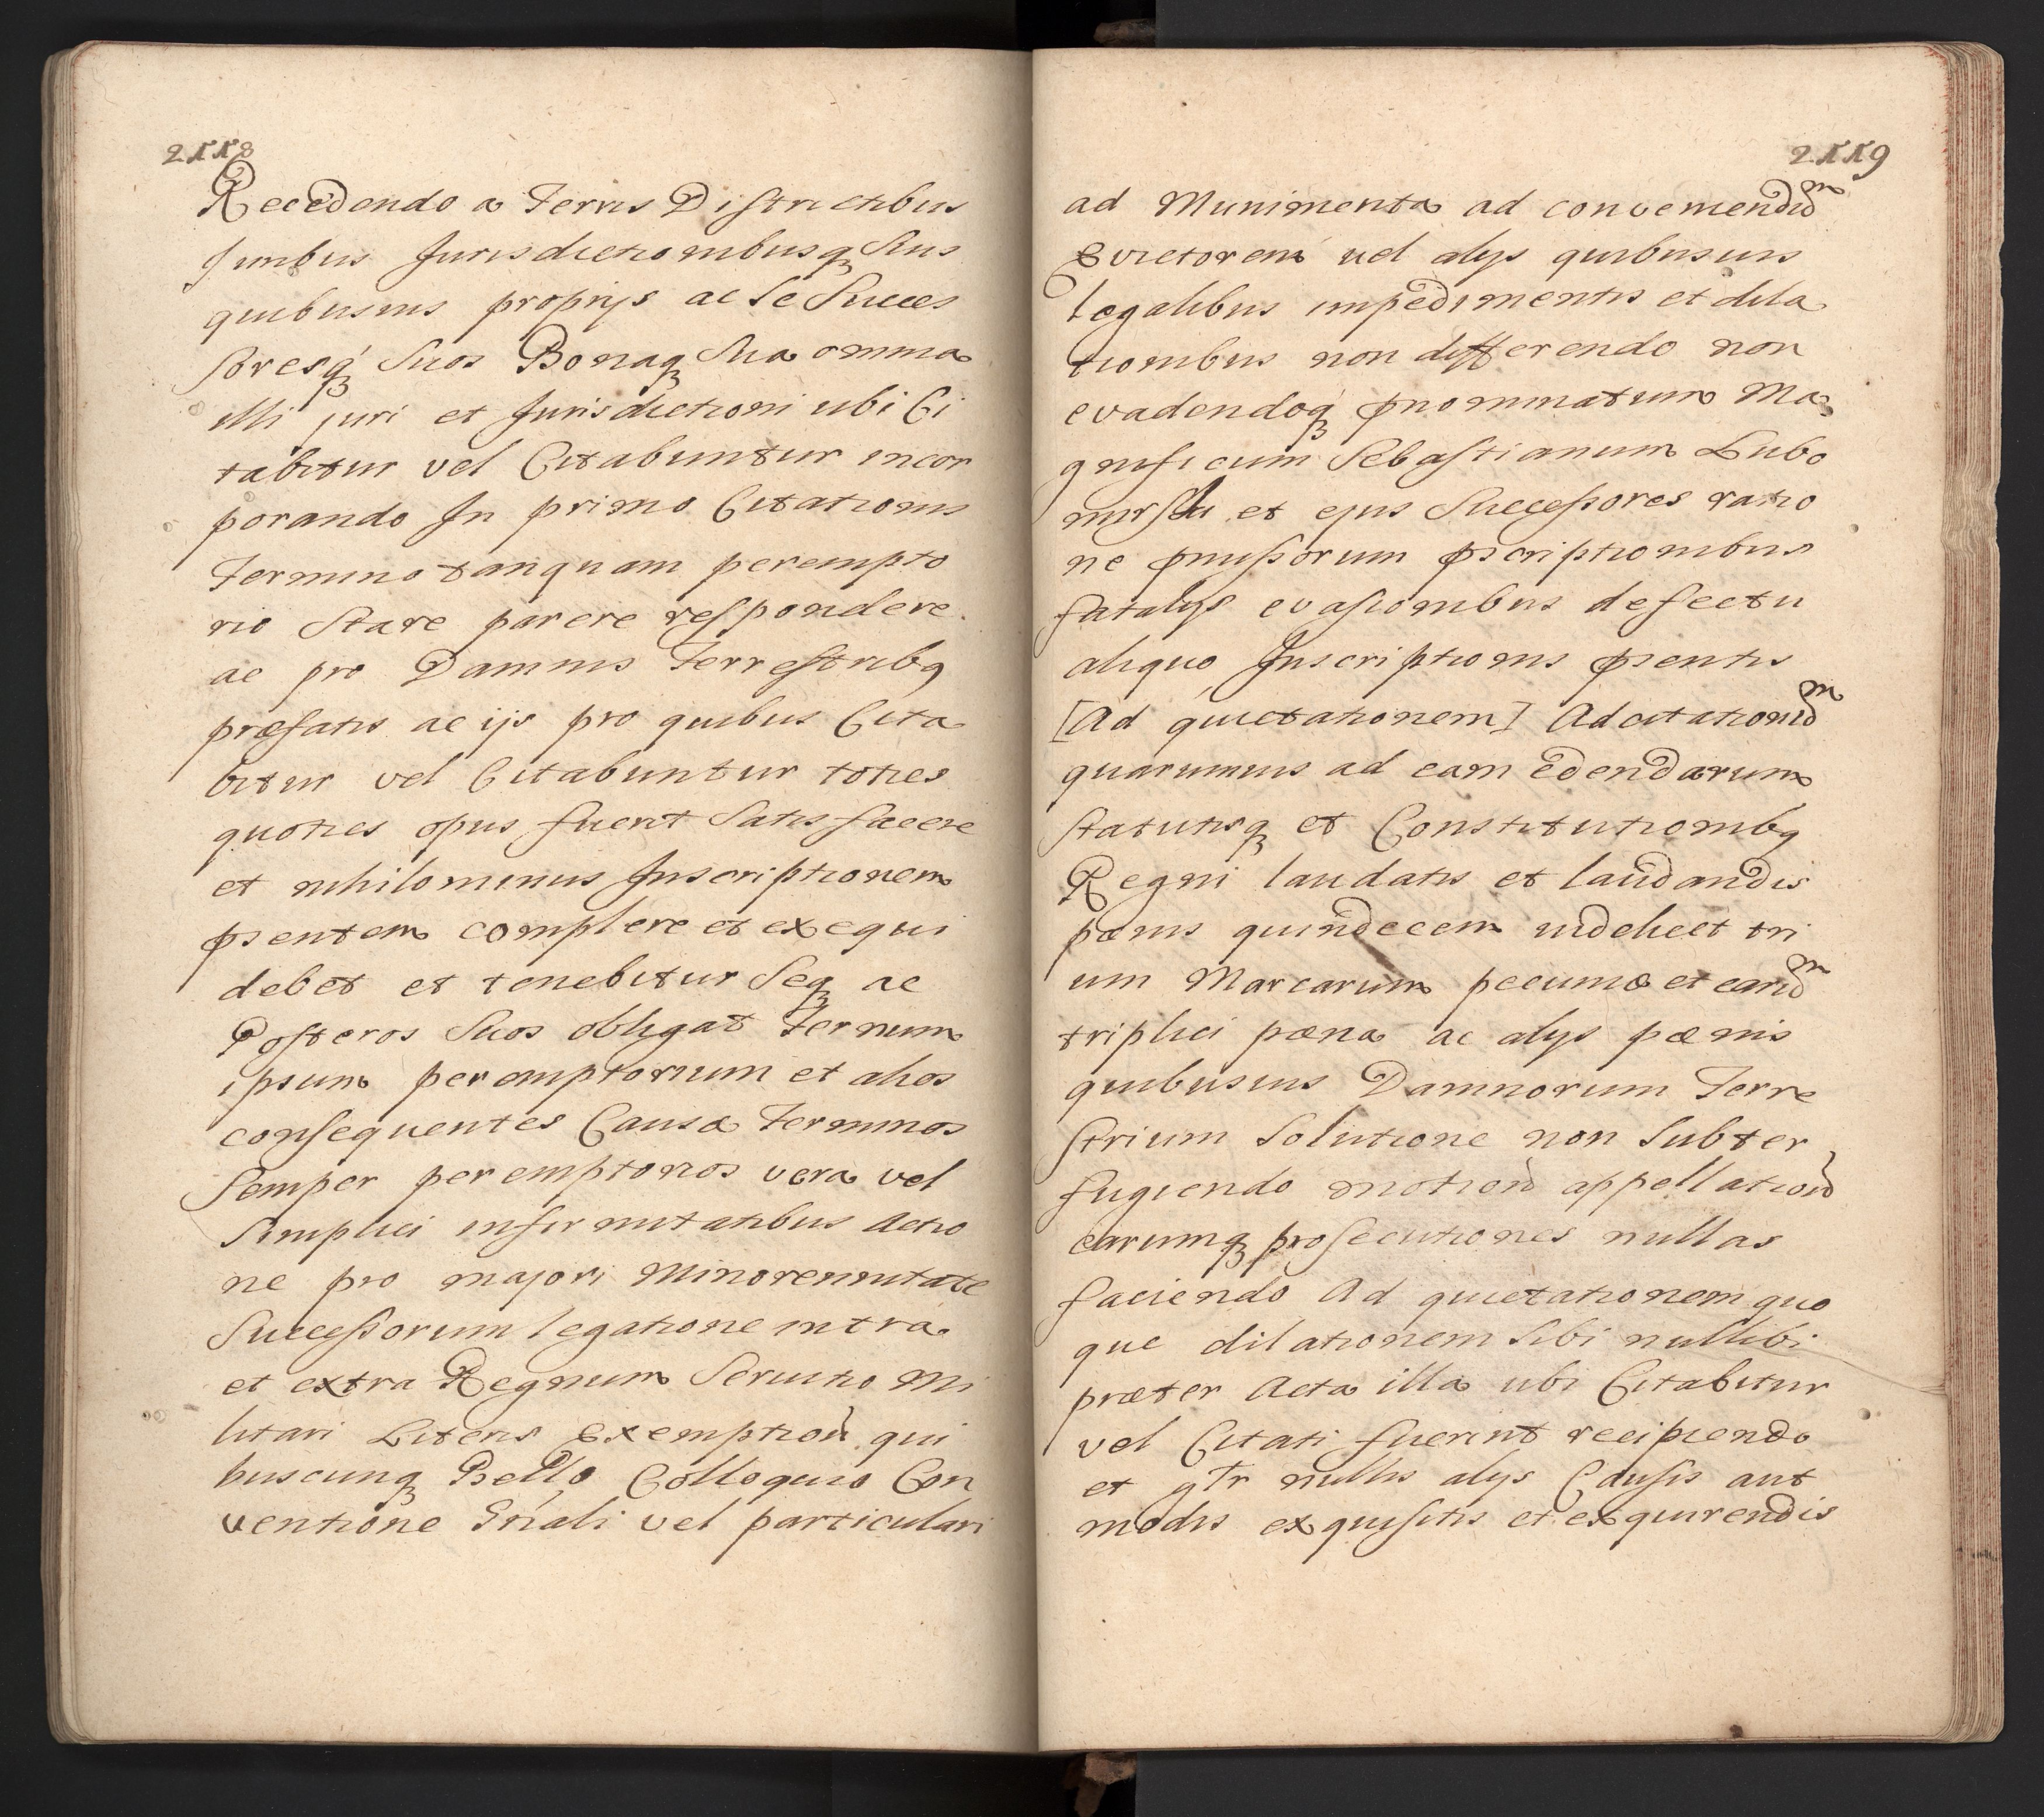 2118
Recedendo a Terris Districtibus
Juribus Jurisdictionibusq Suis
quibusuis proprijs ac Se Succes
soresq Suos Bonaq Sua omnia
illi juri et Jurisdictioni ubi Ci
tabitur vel Citabuntur incor
porando In primo Citationis
Termino tanquam perempto
rio Stare parere respondere
ac pro Damnis Terrestribq
præfatis ac ijs pro quibus Cita
bitur vel Citabuntur toties
quoties opus fuerit Satisfacere
et nihilominus Inscriptionem
psentem complere et exequi
debet et tenebitur Seq ac
Posteros Suos obligat Termum
ipsum peremptorium et alios
consequentes Causæ Terminos
Semper peremptorios vera vel
Simplici infirmitatibus Actio
ne pro majori Minorennitate
Successorum legatione intra
et extra Regnum Seruitio Mi
litari Literis Exemption qui
buscunq Bello Colloquio Con
ventione Gnali vel particulari
2119
ad Munimenta ad conveniendum
Evictorem vel alys quibusuis
legalibus impedimentis et dila
tionibus non differendo non
evadendoq pnominatum Ma
gnificum Sebastianum Lubo
mirski et ejus Successores ratio
ne pmissorum pscriptionibus
fatalys evasionibus defectu
aliquo Inscriptionis psentis
[Ad quietationem] Ad citationum
quarumuis ad eam edendarum
Statutisq et Constitutionibq
Regni laudatis et laudandis
pænis quindecem videlicet tri
um Marcarum pecuniæ et earum
triplici pæna ac alys pænis
quibusuis Damnorum Terre
strium Solutione non Subter
fugiendo motion appellation
earumq prosecutiones nullas
faciendo Ad quietationem quo
que dilationem Sibi nullibi
præter Acta illa ubi Citabitur
vel Citati fuerint recipiendo
et gtr nullis alys Causis aut
modis exquisitis et exquirendis